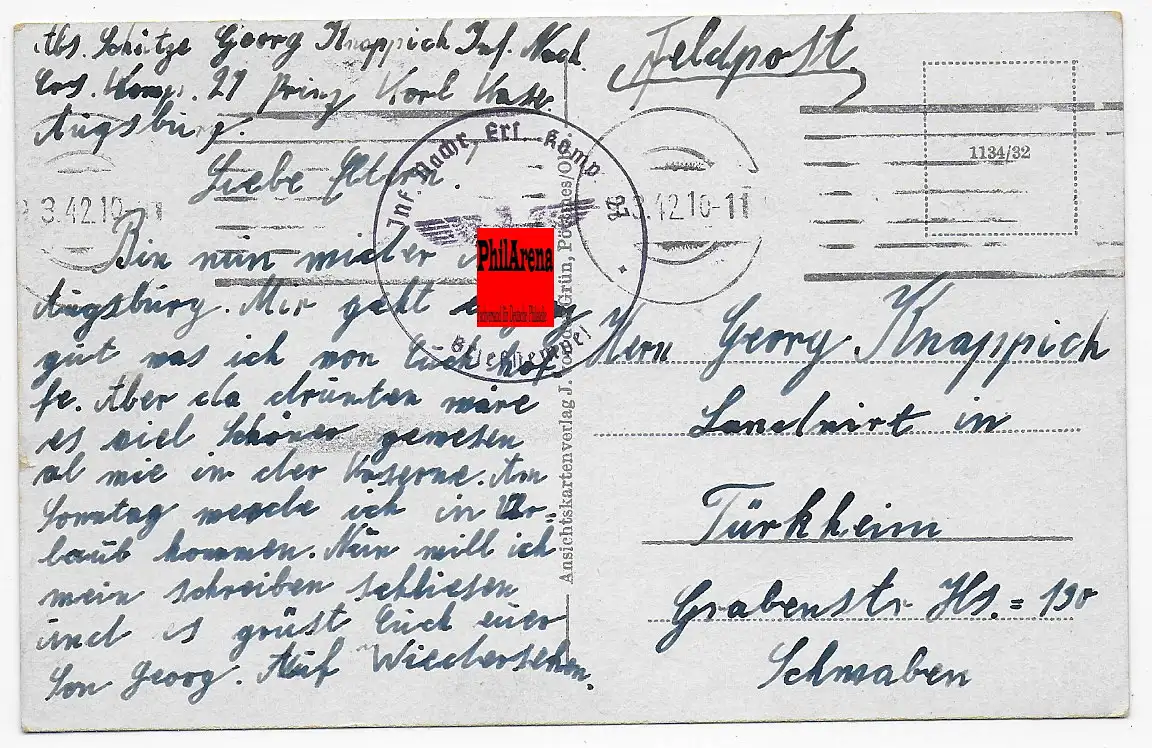 Abs. Schütze Georg Knappich Inf. Nach.
Ers. Komp. 27 Prinz Karl Kase.
Augsburg.
Liebe Eltern.
Bin nun wieder
Augsburg. Mir geht
gut was ich von Euch hof
fe. Aber da drunten wäre
es viel Schöner gewesen
al wie in der Kaserne. Am
Sonntag werde ich in Ur=
laub kommen. Nun will ich
mein schreiben schliesen
und es grüst Euch euer
Son Georg. Auf Wiedersehen.
Feldpost
1134/32
3.42.10-11
.42.10-11
Inf. Nachr. Ers. Komp. 27
Briefstempel
PhilArena
Ansichtskartenverlag J. Grün, Pöttmes/Ob
Herrn Georg Knappich
Landwirt in
Türkheim
Grabenstr. Hs.=130
Schwaben